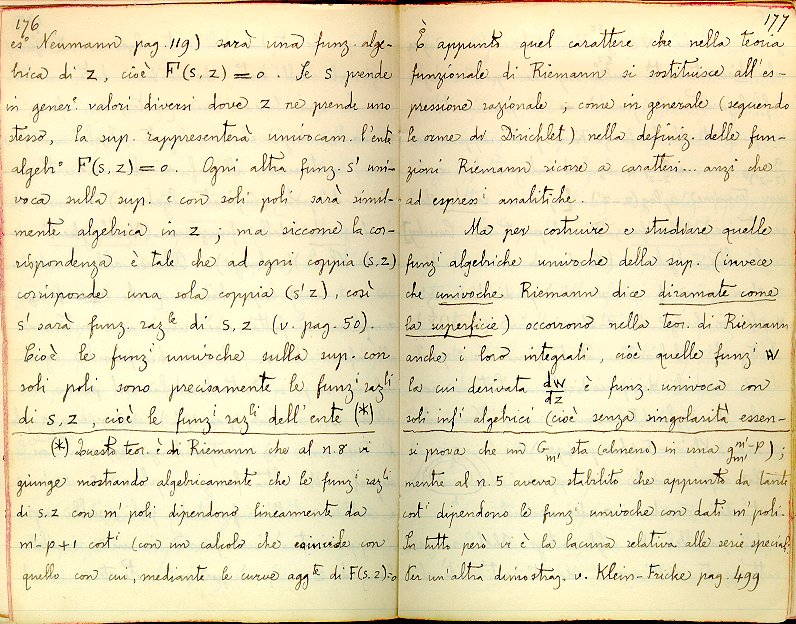 176
es.° Neumann pag. 119) sarà una funz. alge-
brica di z, cioè F(s, z) = 0. Se s prende
in gener.e valori diversi dove z ne prende uno
stesso, la sup. rappresenterà univocam. l'ente
algebr.° F(s, z) = 0. Ogni altra funz. s' uni-
voca sulla sup. e con soli poli sarà simil-
mente algebrica in z ; ma siccome la cor-
rispondenza è tale che ad ogni coppia (s, z)
corrisponde una sola coppia (s' z), così
s' sarà funz. raz.le di s, z (v. pag. 50).
Cioè le funz.i univoche sulla sup. con
soli poli sono precisamente le funz.i raz.li
di s, z, cioè le funz.i raz.li dell'ente (*)
(*) Questo teor. è di Riemann che al n. 8 vi
giunge mostrando algebricamente che le funz.i raz.li
di s, z con m' poli dipendono linearmente da
m'-p+1 cost.i (con un calcolo che coincide con
quello con cui, mediante le curve agg.te di F(s, z)=0
177
È appunto quel carattere che nella teoria
funzionale di Riemann si sostituisce all'es-
pressione razionale ; come in generale (seguendo
le orme di Dirichlet) nella definiz. delle fun-
zioni Riemann ricorre a caratteri... anzi che
ad espress.i analitiche.
Ma per costruire e studiare quelle
funz.i algebriche univoche della sup. (invece
che univoche Riemann dice diramate come
la superficie) occorrono nella teor. di Riemann
anche i loro integrali, cioè quelle funz.i w
la cui derivata dw/dz è funz. univoca con
soli inf.i algebrici (cioè senza singolarità essen-
si prova che un G_m' sta (almeno) in una g_m'^m'-p) ;
mentre al n. 5 aveva stabilito che appunto da tante
cost.i dipendono le funz.i univoche con dati m' poli.
In tutto però vi è la lacuna relativa alle serie speciali.
Per un'altra dimostraz. v. Klein-Fricke pag. 499